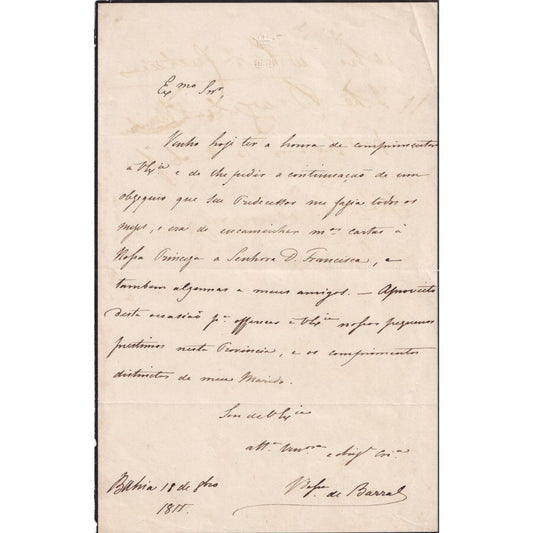 Ex.mo Snr,
Venho hoje ter a honra de comprimentar
a V. Ex.cia e de lhe pedir a continuação de um
obzequio que seu Predecessor me fazia todos os
mezes, e era de encaminhar m.as cartas á
Nossa Princeza a Senhora D. Francisca, e
tambem algumas a meus amigos. — Aproveito
desta occasião p.a offerecer a V. Ex.cia nossos pequenos
prestimos nesta Provincia, e os comprimentos
distinctos de meu Marido.
Sou de V. Ex.cia
att.a e
de Barral
Bahia 18 de 8bro